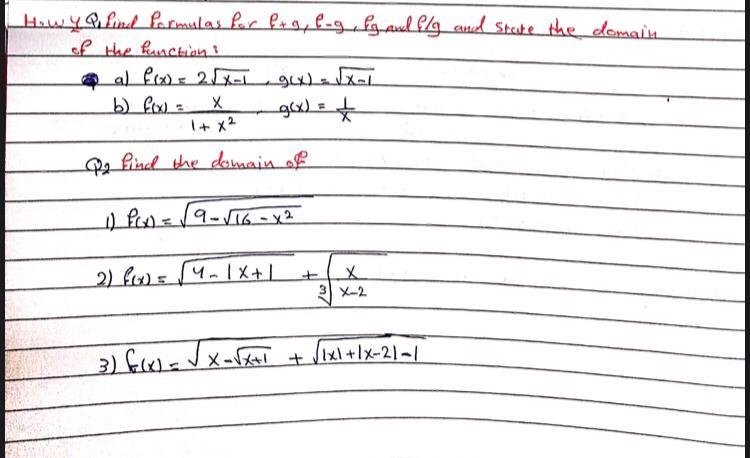 H.w 4 Q1 find formulas for f+g, f-g, fg and f/g and state the domain
of the function:
a) f(x) = 2√x-1 , g(x) = √x-1
b) f(x) = x/1+x² , g(x) = 1/x
Q2 find the domain of
1) f(x) = √9-√16-x²
2) f(x) = √4-|x+1| + ∛x/x-2
3) f(x) = √x-√x+1 + √|x|+|x-2|-1